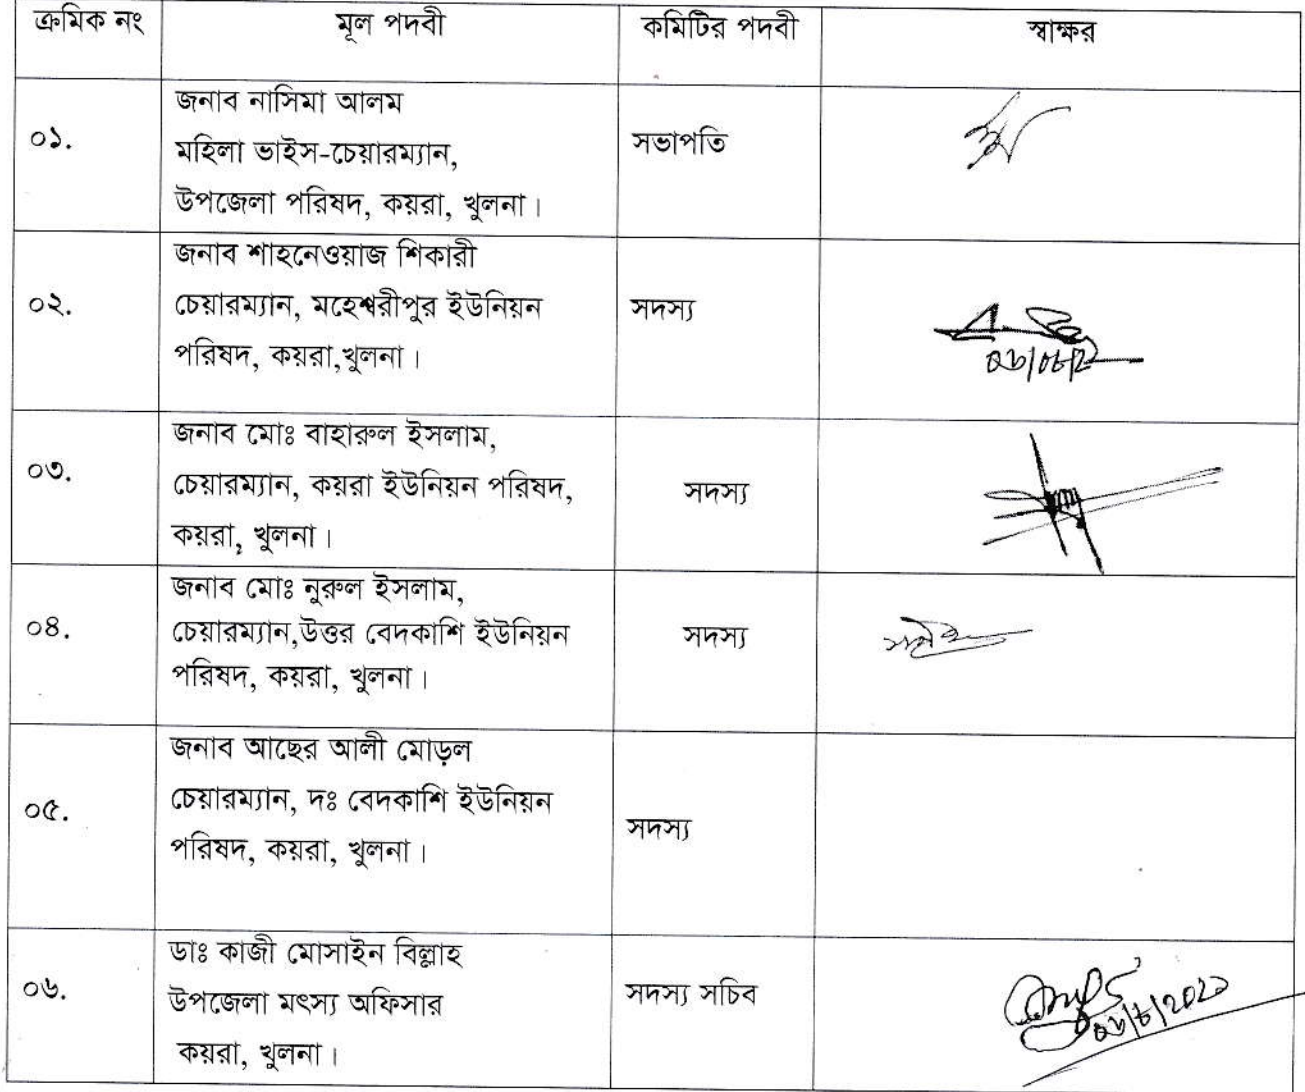 ক্রমিক নং মূল পদবী কমিটির পদবী স্বাক্ষর
০১. জনাব নাসিমা আলম
মহিলা ভাইস-চেয়ারম্যান,
উপজেলা পরিষদ, কয়রা, খুলনা।
সভাপতি
০২. জনাব শাহনেওয়াজ শিকারী
চেয়ারম্যান, মহেশ্বরীপুর ইউনিয়ন
পরিষদ, কয়রা,খুলনা।
সদস্য
০৩. জনাব মোঃ বাহারুল ইসলাম,
চেয়ারম্যান, কয়রা ইউনিয়ন পরিষদ,
কয়রা, খুলনা।
সদস্য
০৪. জনাব মোঃ নুরুল ইসলাম,
চেয়ারম্যান,উত্তর বেদকাশি ইউনিয়ন
পরিষদ, কয়রা, খুলনা।
সদস্য
০৫. জনাব আছের আলী মোড়ল
চেয়ারম্যান, দঃ বেদকাশি ইউনিয়ন
পরিষদ, কয়রা, খুলনা।
সদস্য
০৬. ডাঃ কাজী মোসাইন বিল্লাহ
উপজেলা মৎস্য অফিসার
কয়রা, খুলনা।
সদস্য সচিব